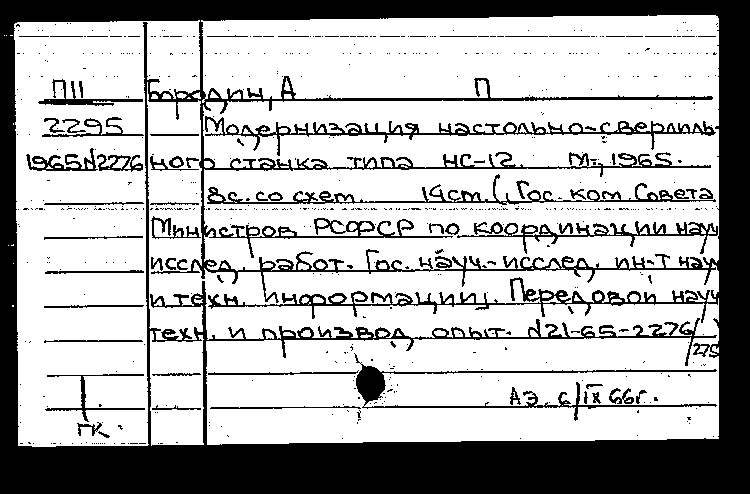 ПII Бородин, А П
2295 Модернизация настольно-сверлиль-
1965N2276 ного станка типа НС-12. М., 1965.
8с. со схем. 14см. (Гос. ком. Совета
Министров РСФСР по координации науч
исслед. работ. Гос. науч.-исслед. ин-т науч
и техн. информации). Передовой науч
техн. и производ. опыт. N21-65-2276/275)
АЭ 6/IX 66г.
ГК.